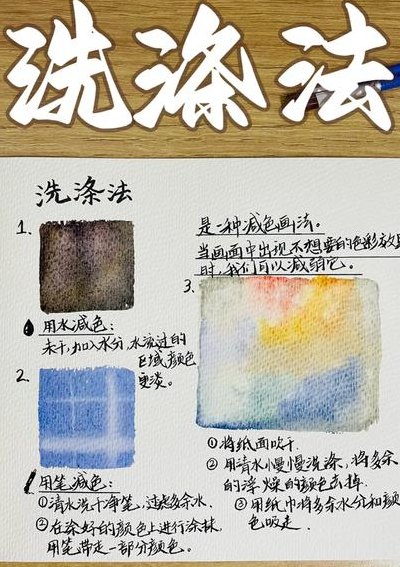 洗涤法
洗涤法
1.
用水减色:
未干,加入水分,水流过的
区域颜色
更淡。
2.
用笔减色:
①清水洗干净笔,过多余水.
②在涂好的颜色上进行涂抹.
用笔带走一部分颜色。
是一种减色画法。
当画面中出现不想要的色彩效果
时,我们可以减弱它。
3.
①将纸面吹干.
②用清水慢慢洗涤,将多余
的颜色去掉.
③用纸巾将多余水分和颜
色吸走.